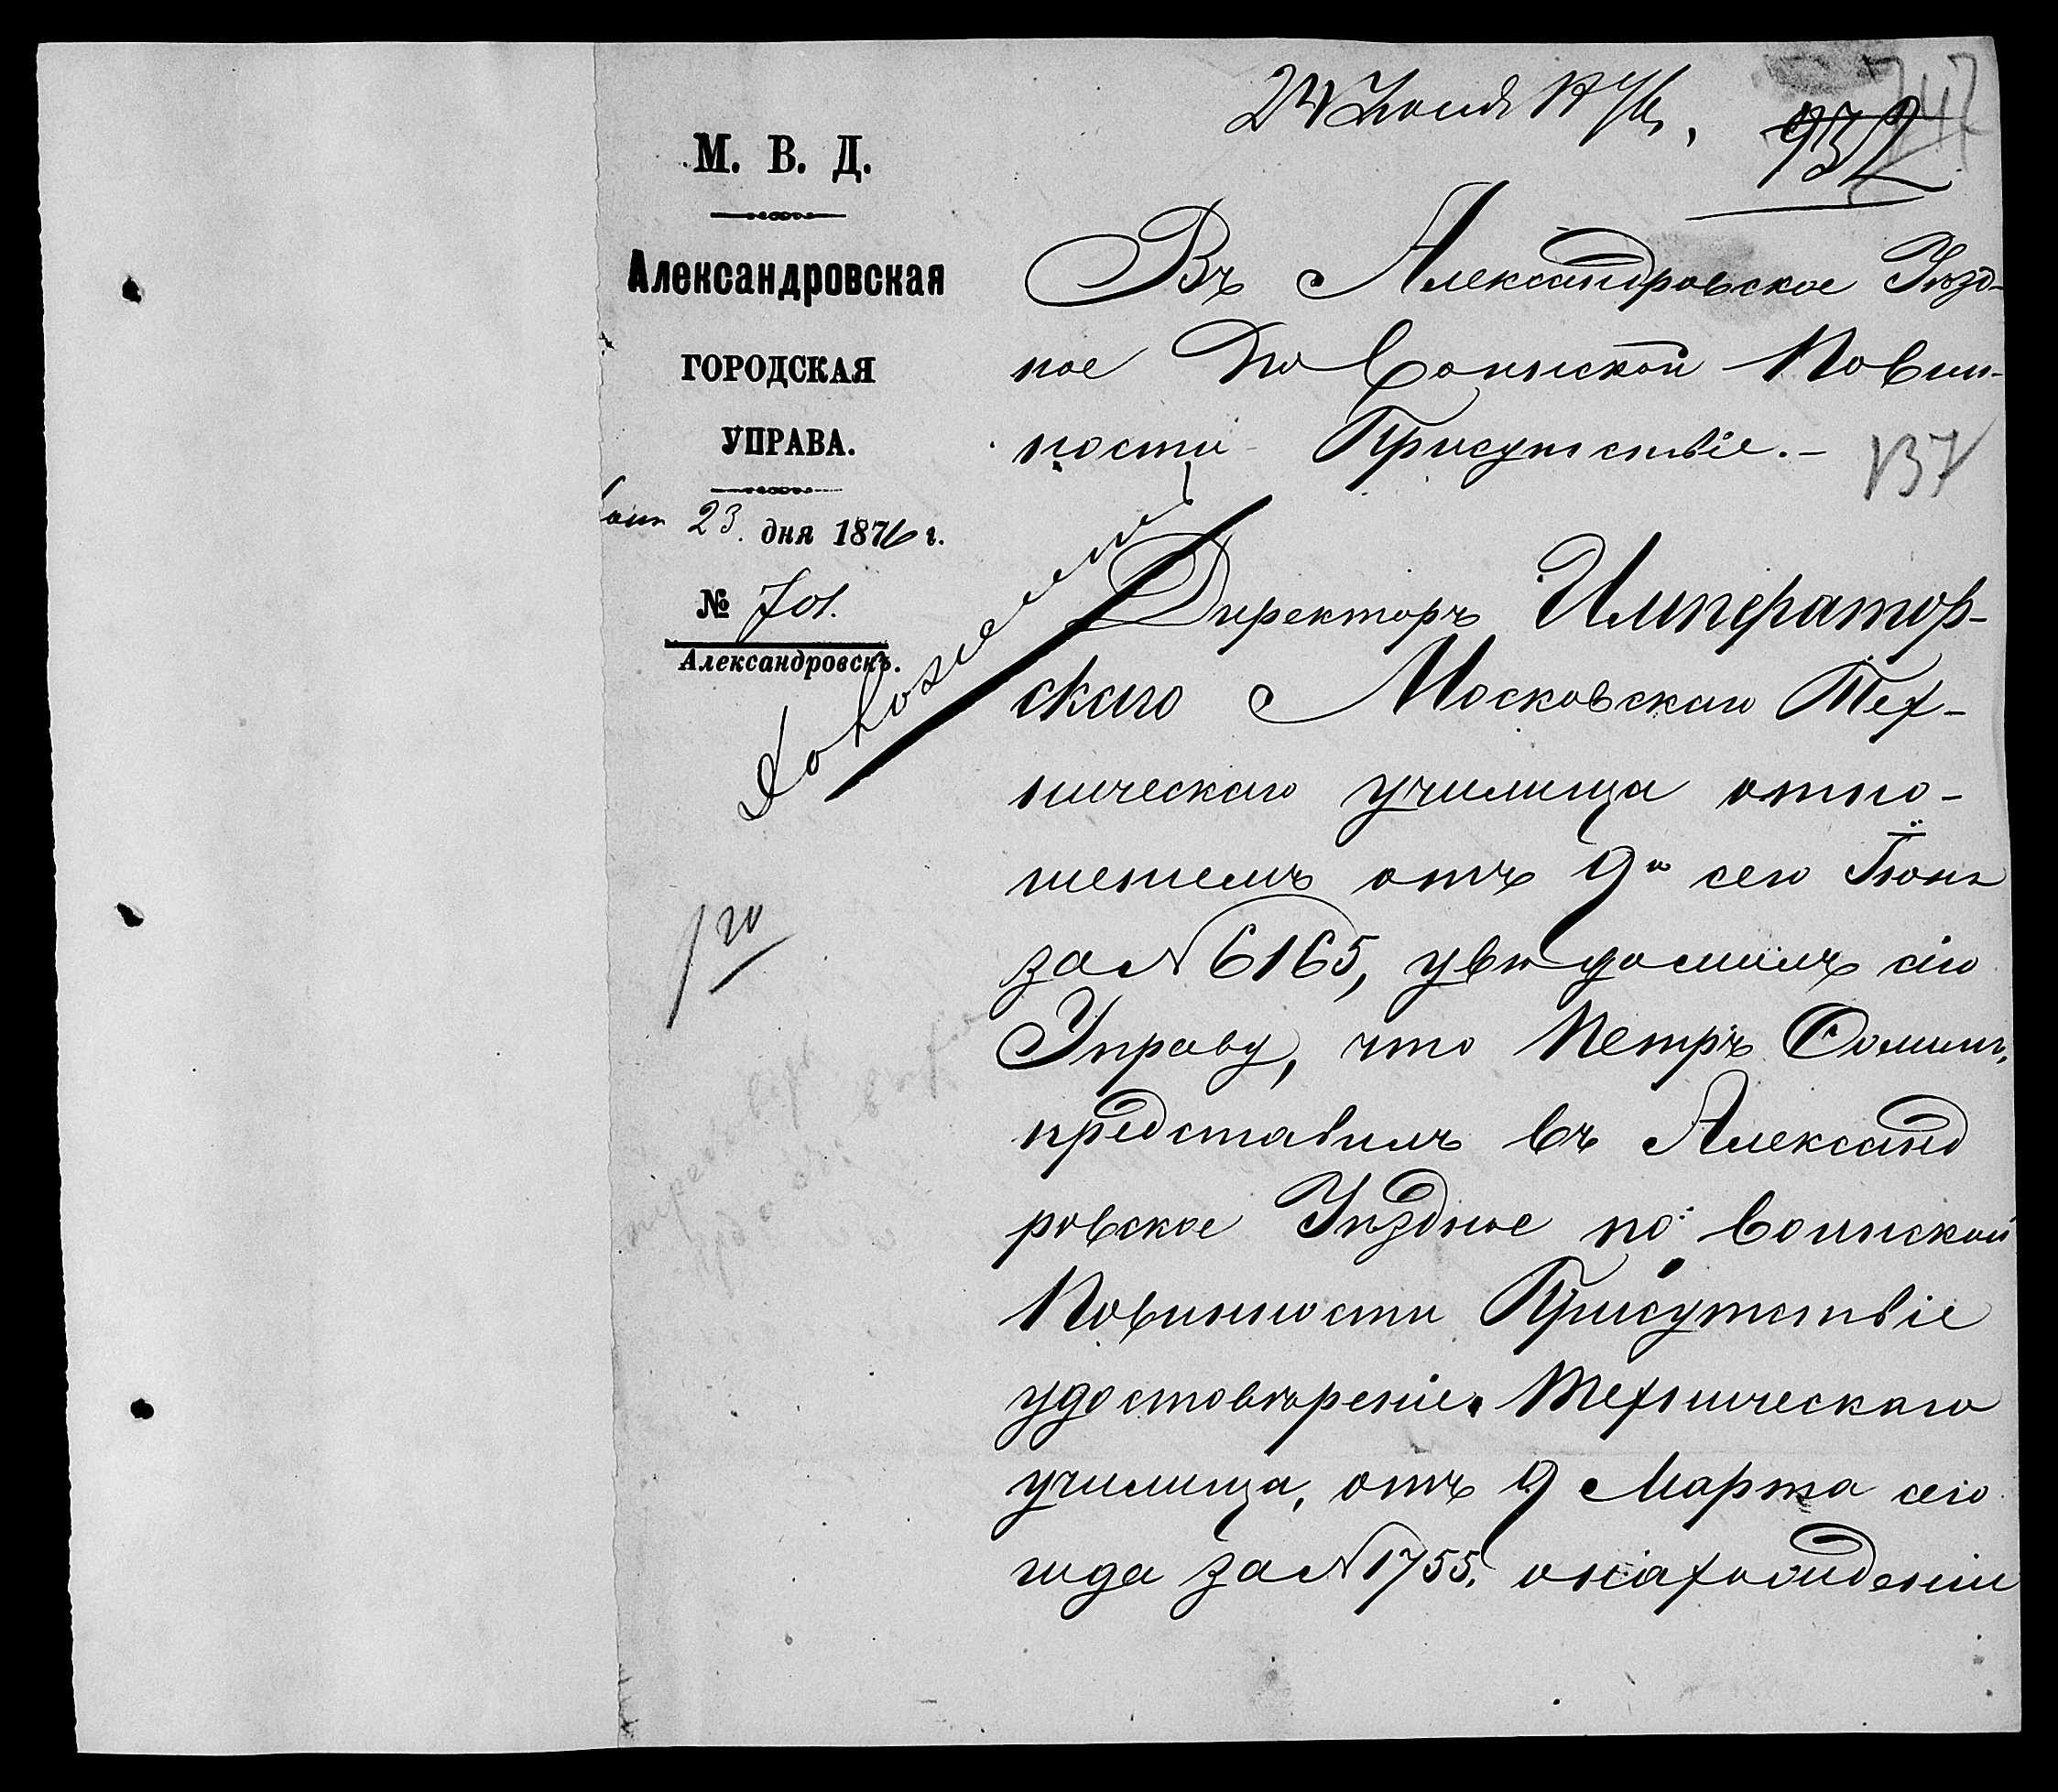 24 Іюня 1876,
932
М. В. Д.
Александровская
ГОРОДСКАЯ
УПРАВА.
23. дня 1876 г.
№ 701.
Александровскъ.
Въ Александровское Уѣзд-
ное По Воинской Повин-
ности Присутствіе.-
137
Директоръ Император-
скаго Московскаго Тех-
ническаго училища отно-
шенiемъ отъ 9го сего Іюня
за № 6165, увѣдомилъ сію
Управу, что Петръ Фоминъ,
представилъ въ Александ
ровское Уѣздное по воинской
Повинности Присутствіе
удостовѣреніе Техническаго
училища, отъ 9 Марта сего
года за № 1755. о нахожденіи